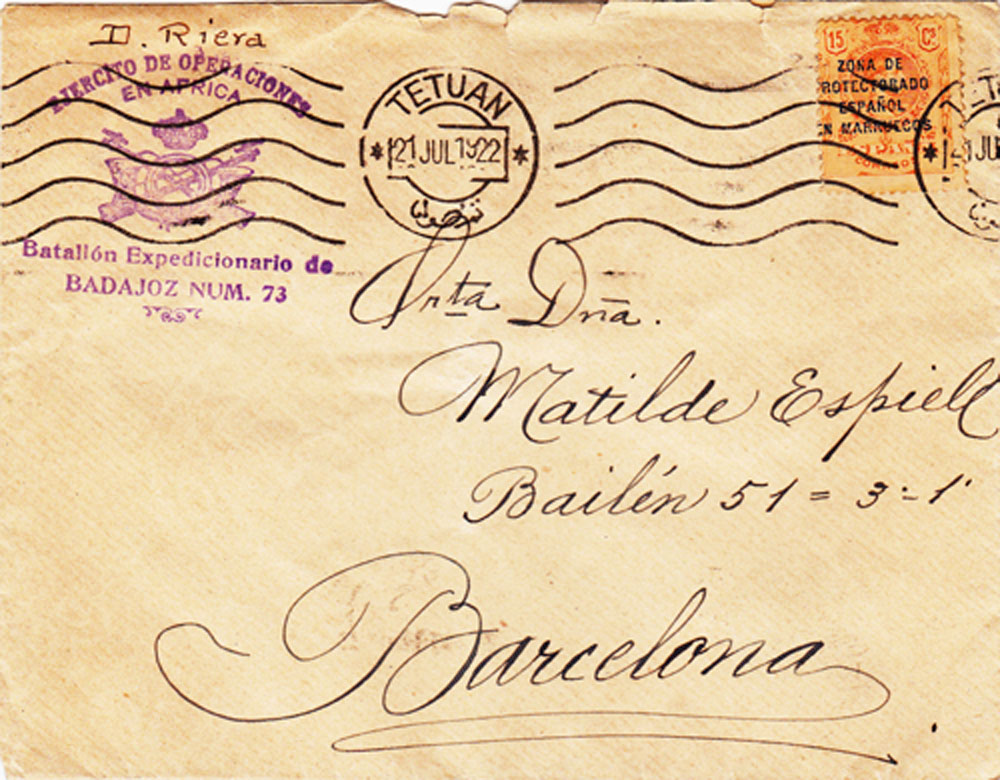 D. Riera
EJERCITO DE OPERACIONES
EN AFRICA
Batallón Expedicionario de
BADAJOZ NUM. 73
TETUAN
21 JUL 1922
تطوان
15 Cs
ZONA DE
ROTECTORADO
ESPAÑOL
EN MARRUECOS
CORREOS
TET
1 JU
Srta Dña.
Matilde Espiell
Bailén 51 = 3º - 1ª
Barcelona